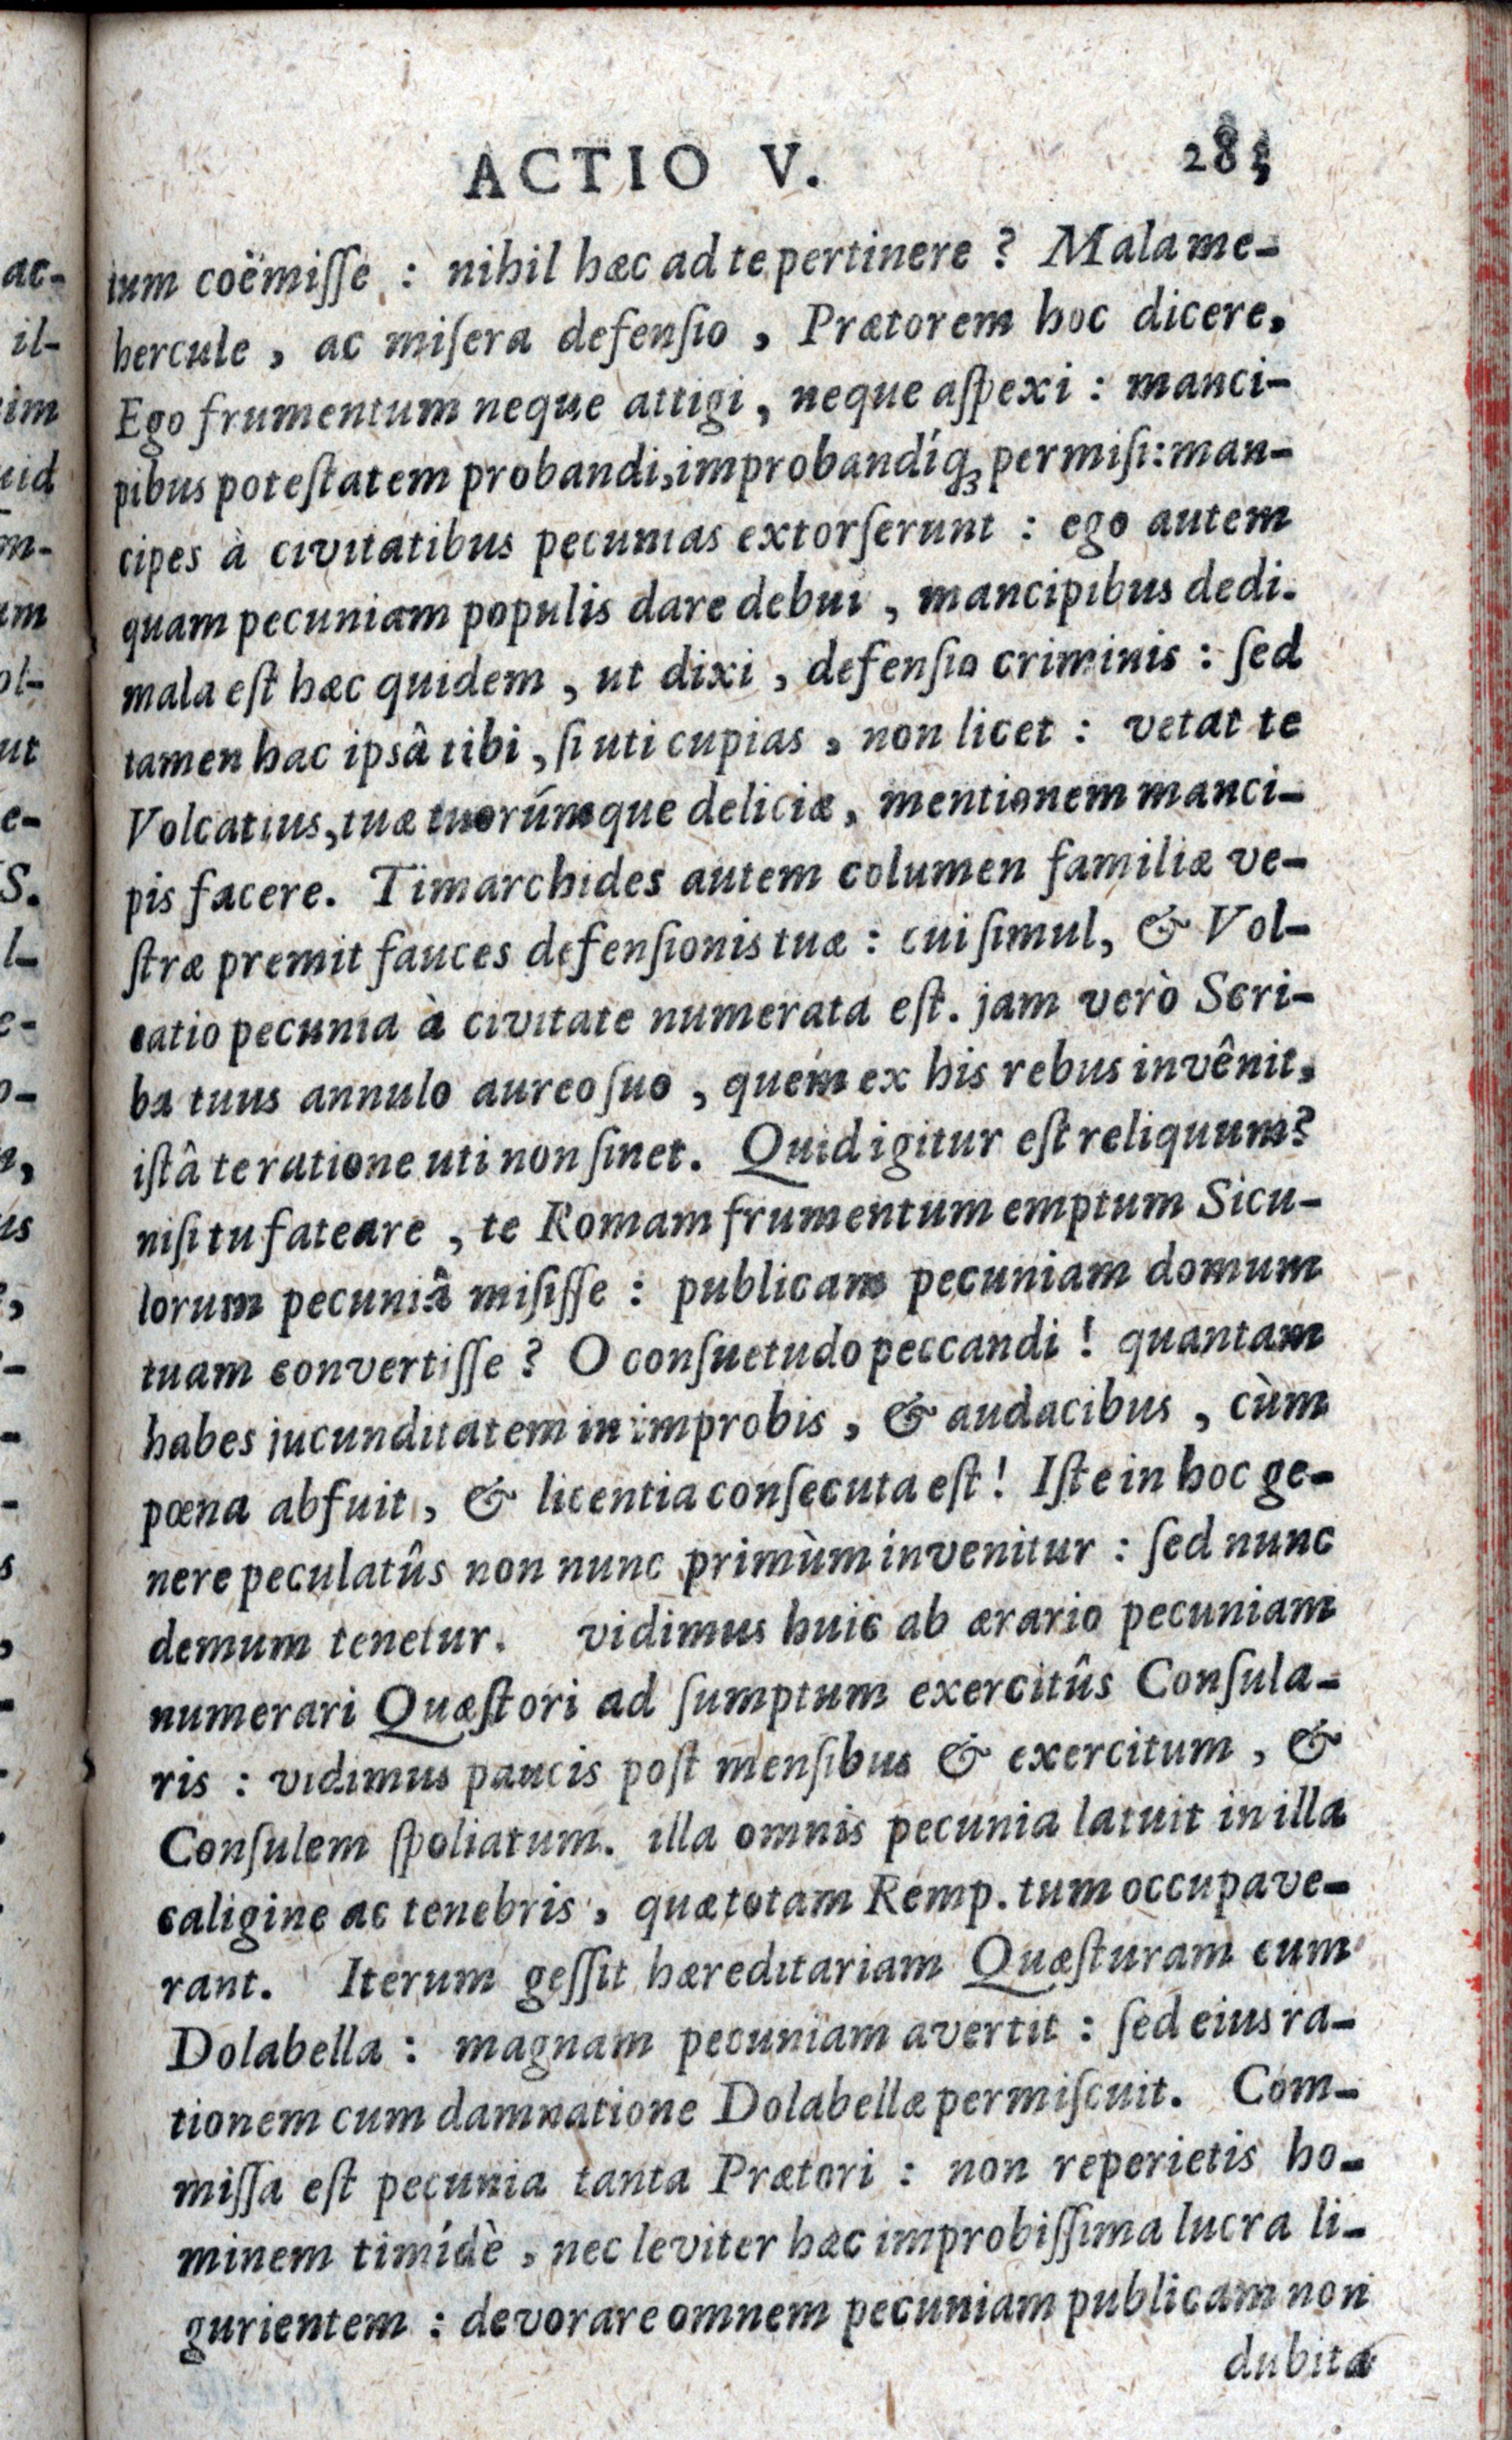 ACTIO V. 285
tum coëmiſſe : nihil hæc ad te pertinere ? Mala me-
hercule , ac miſera defenſio , Prætorem hoc dicere,
Ego frumentum neque attigi , neque aſpexi : manci-
pibus poteſtatem probandi,improbandíq; permiſi:man-
cipes à civitatibus pecunias extorſerunt : ego autem
quam pecuniam populis dare debui , mancipibus dedi.
mala eſt hæc quidem , ut dixi , defenſio criminis : ſed
tamen hac ipsâ tibi , ſi uti cupias , non licet : vetat te
Volcatius,tuæ tuorúmque deliciæ, mentionem manci-
pis facere. Timarchides autem columen familiæ ve-
ſtræ premit fauces defenſionis tuæ : cui ſimul, & Vol-
catio pecunia à civitate numerata eſt. jam verò Scri-
ba tuus annulo aureo ſuo , quem ex his rebus invênit,
iſtâ te ratione uti non ſinet. Quid igitur eſt reliquum?
niſi tu fateare , te Romam frumentum emptum Sicu-
lorum pecuniâ miſiſſe : publicam pecuniam domum
tuam convertiſſe ? O conſuetudo peccandi ! quantam
habes jucunditatem in improbis , & audacibus , cùm
pœna abfuit , & licentia conſecuta eſt ! Iſte in hoc ge-
nere peculatûs non nunc primùm invenitur : ſed nunc
demum tenetur. vidimus huic ab ærario pecuniam
numerari Quæſtori ad ſumptum exercitûs Conſula-
ris : vidimus paucis poſt menſibus & exercitum , &
Conſulem ſpoliatum. illa omnis pecunia latuit in illa
caligine ac tenebris , quæ totam Remp. tum occupave-
rant. Iterum geſſit hæreditariam Quæſturam cum
Dolabella : magnam pecuniam avertit : ſed eius ra-
tionem cum damnatione Dolabellæ permiſcuit. Com-
miſſa eſt pecunia tanta Prætori : non reperietis ho-
minem timídè , nec leviter hæc improbiſſima lucra li-
gurientem : devorare omnem pecuniam publicam non
dubita
ac-
il-
im
uid
m-
um
ol-
ut
e-
S.
l-